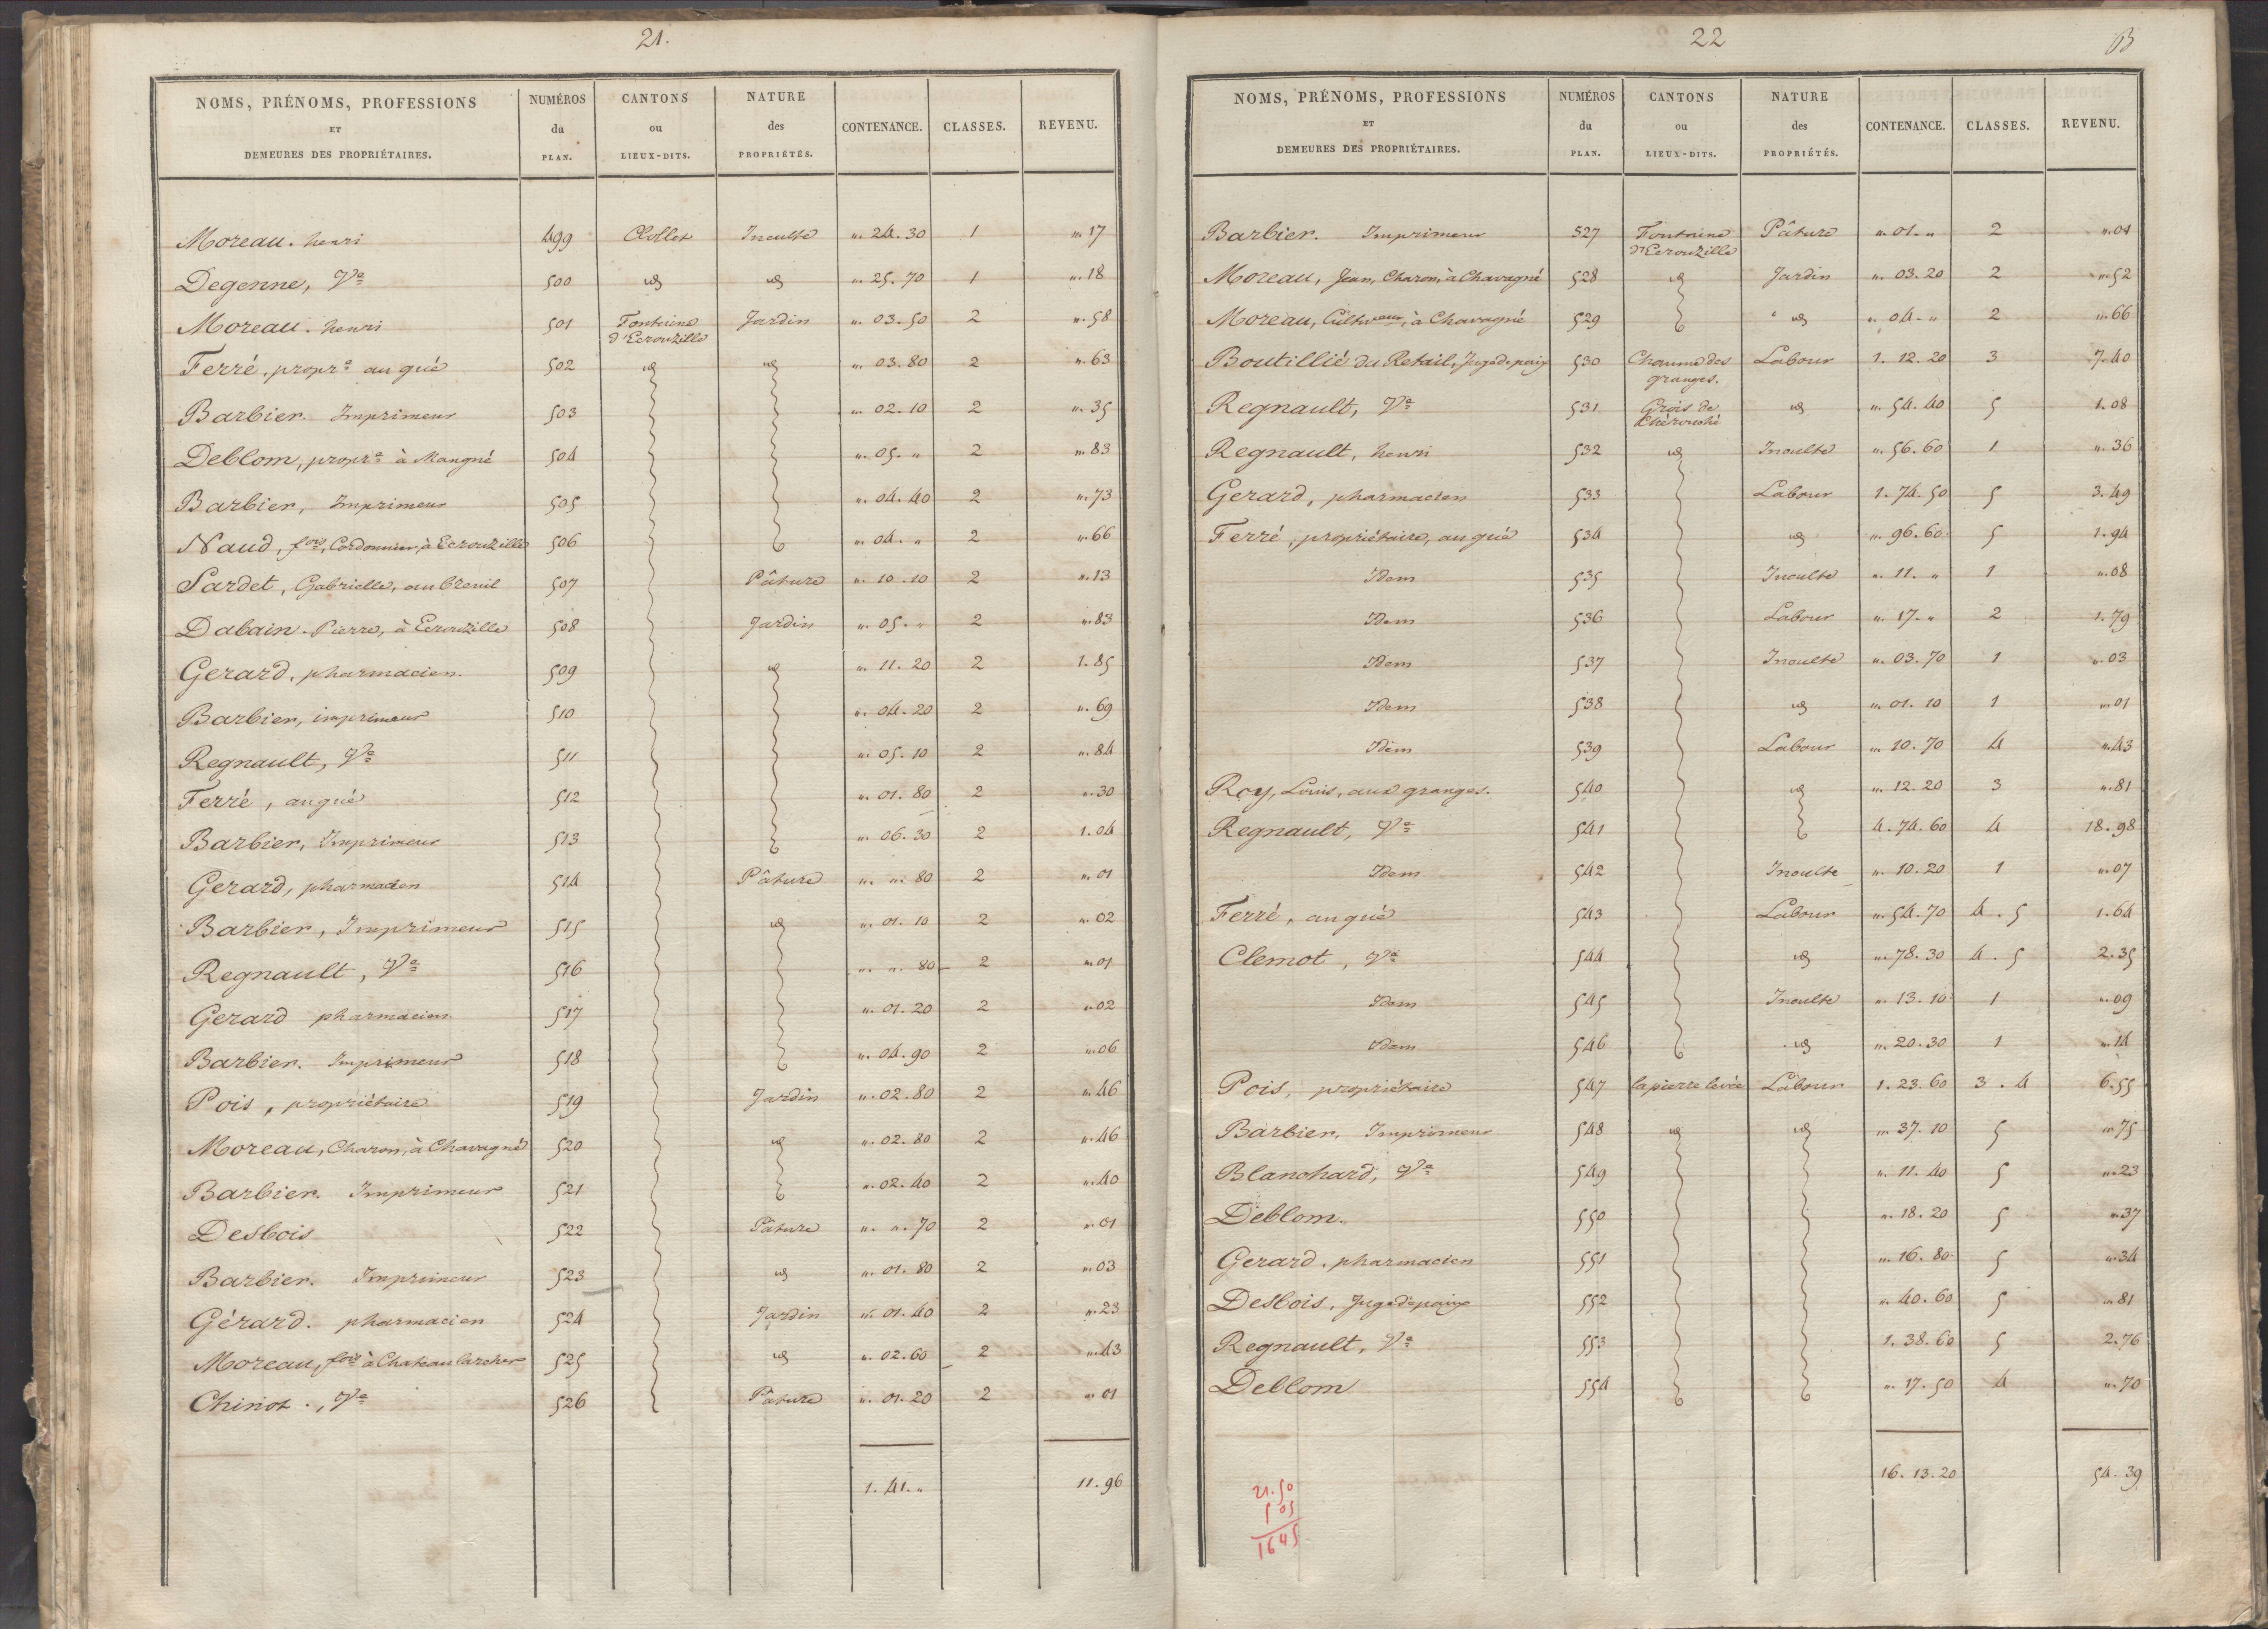 21.
NOMS, PRÉNOMS, PROFESSIONS ET DEMEURES DES PROPRIÉTAIRES. NUMÉROS du PLAN. CANTONS ou LIEUX-DITS. NATURE des PROPRIÉTÉS. CONTENANCE. CLASSES. REVENU.
Moreau. henri 499 Clollet Inculte ". 24. 30 1 ". 17
Degenne, Ve 500 id id ". 25. 70 1 ". 18
Moreau. henri 501 Fontaine d'Ecrouzille Jardin ". 03. 50 2 ". 58
Ferré, propre au gué 502 id id ". 03. 80 2 ". 63
Barbier. Imprimeur 503 ". 02. 10 2 ". 35
Deblom, propre à Mangné 504 ". 05. " 2 ". 83
Barbier, Imprimeur 505 ". 04. 40 2 ". 73
Naud, fois, Cordonnier, à Ecrouzille 506 ". 04. " 2 ". 66
Sardet, Gabrielle, au breuil 507 Pâture ". 10. 10 2 ". 13
Dabain. Pierre, à Ecrouzille 508 Jardin ". 05. " 2 ". 83
Gerard, pharmacien. 509 id ". 11. 20 2 1. 85
Barbier, imprimeur 510 ". 04. 20 2 ". 69
Regnault, Ve 511 ". 05. 10 2 ". 84
Ferré, au gué 512 ". 01. 80 2 ". 30
Barbier, Imprimeur 513 ". 06. 30 2 1. 04
Gerard, pharmacien 514 Pâture ". ". 80 2 ". 01
Barbier, Imprimeur 515 id ". 01. 10 2 ". 02
Regnault, Ve 516 ". ". 80 2 ". 01
Gerard pharmacien 517 ". 01. 20 2 ". 02
Barbier. Imprimeur 518 ". 04. 90 2 ". 06
Pois, propriétaire 519 Jardin ". 02. 80 2 ". 46
Moreau, Charon, à Chavagné 520 id ". 02. 80 2 ". 46
Barbier. Imprimeur 521 ". 02. 40 2 ". 40
Desbois 522 Pâture ". ". 70 2 ". 01
Barbier. Imprimeur 523 id ". 01. 80 2 ". 03
Gérard. pharmacien 524 Jardin ". 01. 40 2 ". 23
Moreau, fois à Chateau larcher 525 id ". 02. 60 2 ". 43
Chinot., Ve 526 Pâture ". 01. 20 2 ". 01
1. 41. " 11. 96
22
B
NOMS, PRÉNOMS, PROFESSIONS ET DEMEURES DES PROPRIÉTAIRES. NUMÉROS du PLAN. CANTONS ou LIEUX-DITS. NATURE des PROPRIÉTÉS. CONTENANCE. CLASSES. REVENU.
Barbier. Imprimeur 527 Fontaine d'Ecrouzille Pâture ". 01. " 2 ". 01
Moreau, Jean, Charon, à Chavagné 528 id Jardin ". 03. 20 2 ". 52
Moreau, Cultiveur, à Chavagné 529 id ". 04. " 2 ". 66
Boutillié du Retail, Juge de paix 530 Chaume des granges. Labour 1. 12. 20 3 7. 40
Regnault, Ve 531 Grois de Chérouché id ". 54. 40 5 1. 08
Regnault, henri 532 id Inculte ". 56. 60 1 ". 36
Gerard, pharmacien 533 Labour 1. 74. 50 5 3. 49
Ferré, propriétaire, au gué 534 id ". 96. 60 5 1. 94
Idem 535 Inculte ". 11. " 1 ". 08
Idem 536 Labour ". 17. " 2 1. 79
Idem 537 Inculte ". 03. 70 1 ". 03
Idem 538 id ". 01. 10 1 ". 01
Idem 539 Labour ". 10. 70 4 ". 43
Roy, Louis, aux granges. 540 id ". 12. 20 3 ". 81
Regnault, Ve 541 4. 74. 60 4 18. 98
Idem 542 Inculte ". 10. 20 1 ". 07
Ferré, au gué 543 Labour ". 54. 70 4. 5 1. 64
Clemot, Ve 544 id ". 78. 30 4. 5 2. 35
Idem 545 Inculte ". 13. 10 1 ". 09
Idem 546 id ". 20. 30 1 ". 14
Pois, propriétaire 547 la pierre levée Labour 1. 23. 60 3. 4 6. 55
Barbier, Imprimeur 548 id id ". 37. 10 5 ". 75
Blanchard, Ve 549 ". 11. 40 5 ". 23
Deblom. 550 ". 18. 20 5 ". 37
Gerard. pharmacien 551 ". 16. 80 5 ". 34
Desbois, Juge de paix 552 ". 40. 60 5 ". 81
Regnault, Ve 553 1. 38. 60 5 2. 76
Deblom 554 ". 17. 50 4 ". 70
16. 13. 20 54. 39
21.50
5 05
1645